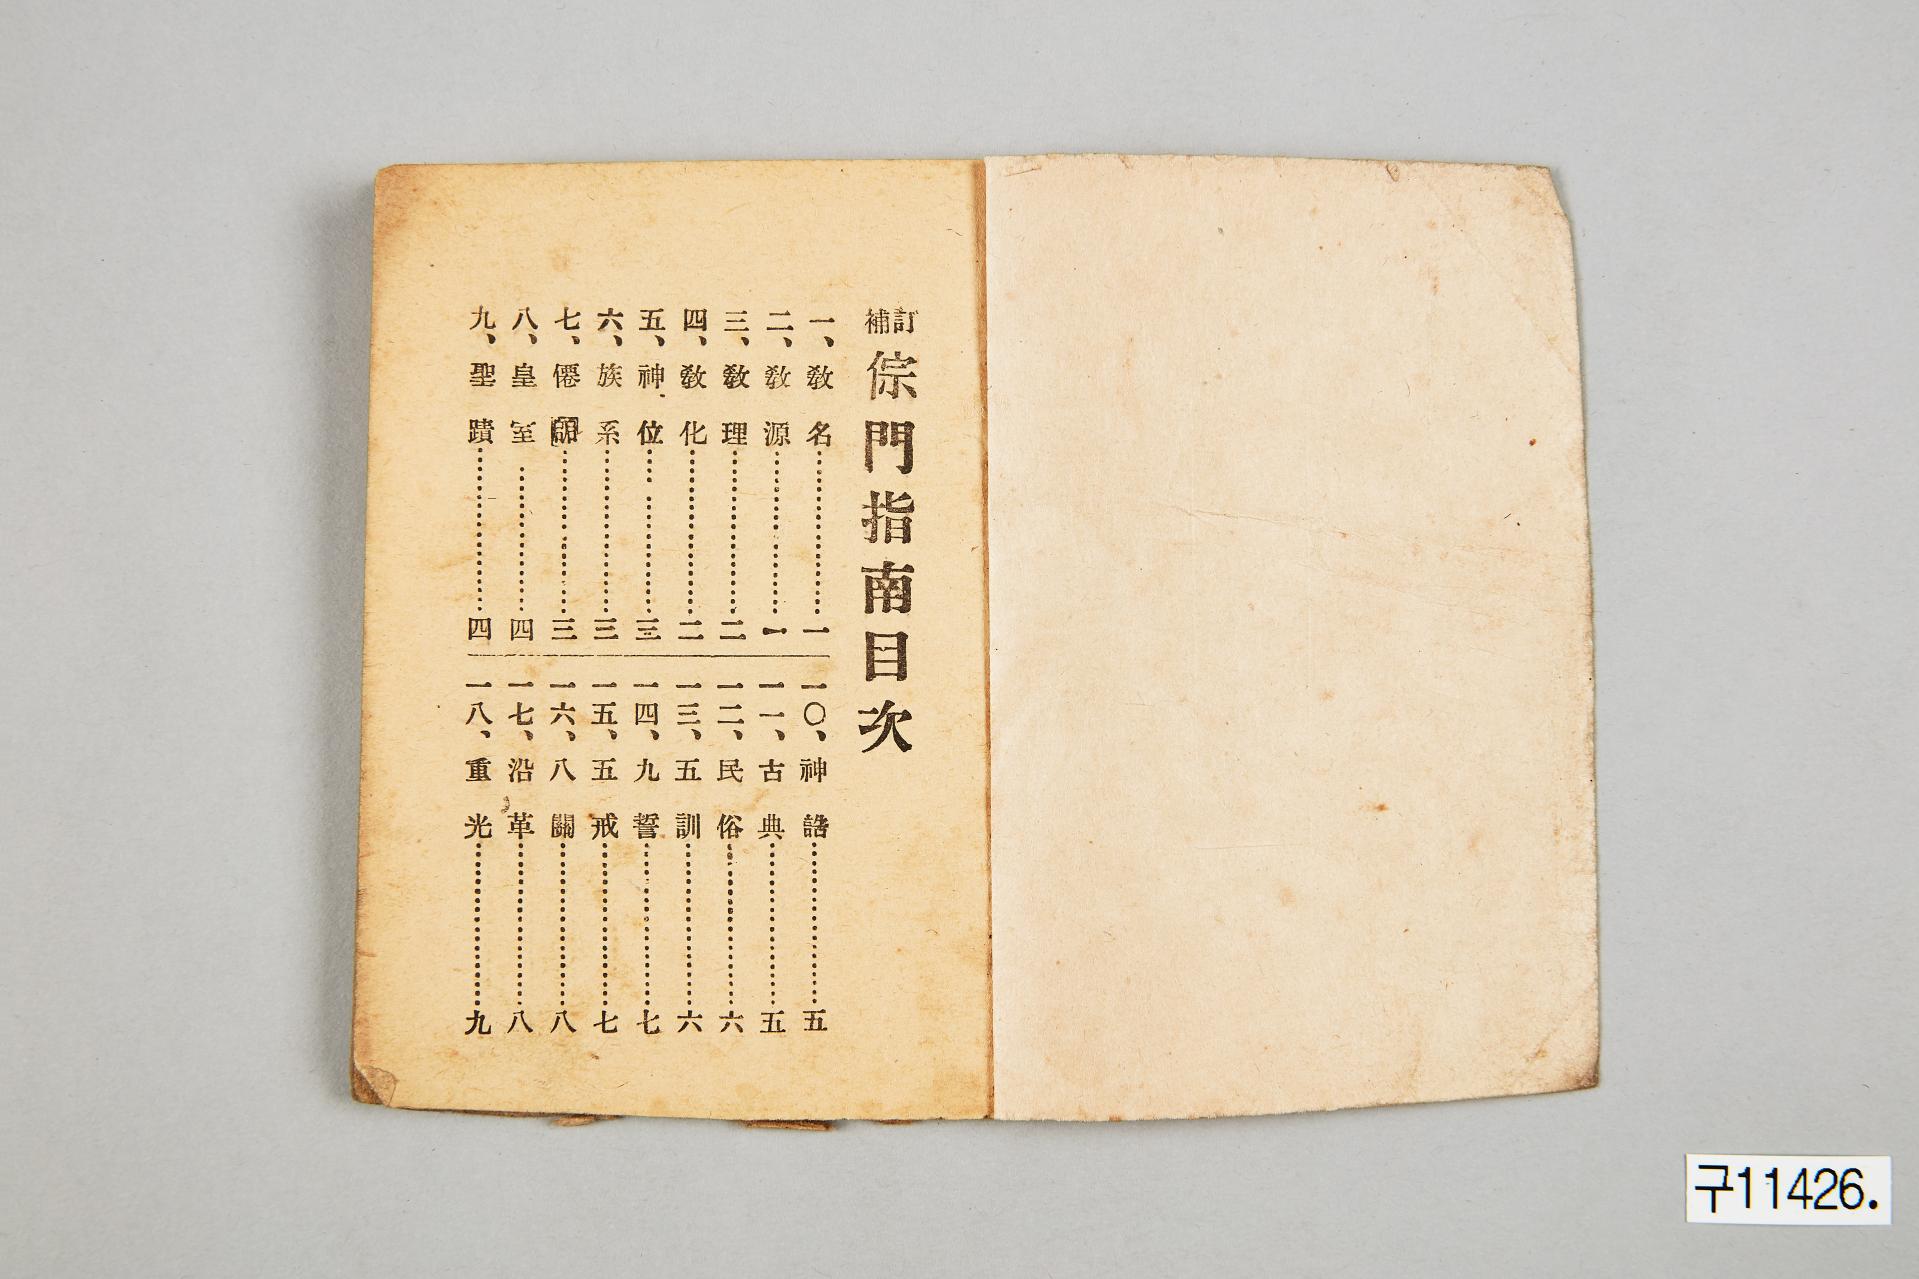 訂補倧門指南目次
一、敎名………………一
二、敎源………………一
三、敎理………………二
四、敎化………………二
五、神位………………三
六、族系………………三
七、僊………………三
八、皇室………………四
九、聖蹟………………四
一〇、神誥………………五
一一、古典………………五
一二、民俗………………六
一三、五訓………………六
一四、九誓………………七
一五、五戒………………七
一六、八關………………八
一七、沿革………………八
一八、重光………………九
구11426.